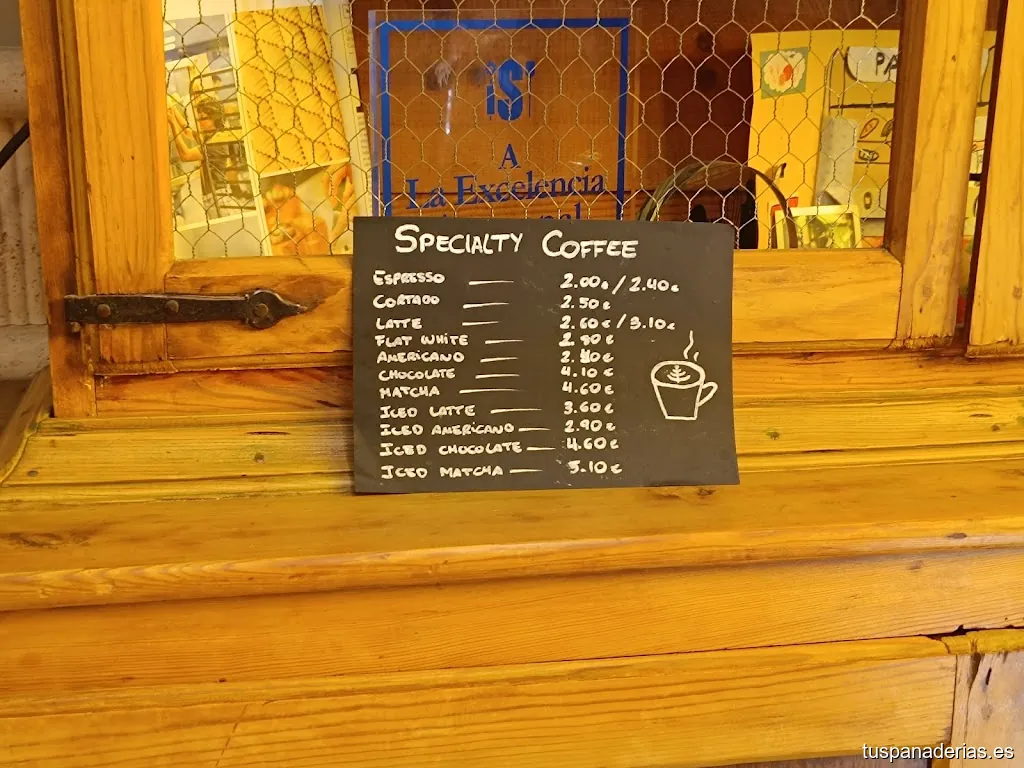 S
A
La Excelencia
PA
SPECIALTY COFFEE
ESPRESSO — 2.00€ / 2.40€
CORTADO — 2.50€
LATTE — 2.60€ / 3.10€
FLAT WHITE — 2.80€
AMERICANO — 2.40€
CHOCOLATE — 4.10€
MATCHA — 4.60€
ICED LATTE — 3.60€
ICED AMERICANO — 2.90€
ICED CHOCOLATE — 4.60€
ICED MATCHA — 5.10€
tuspanaderias.es